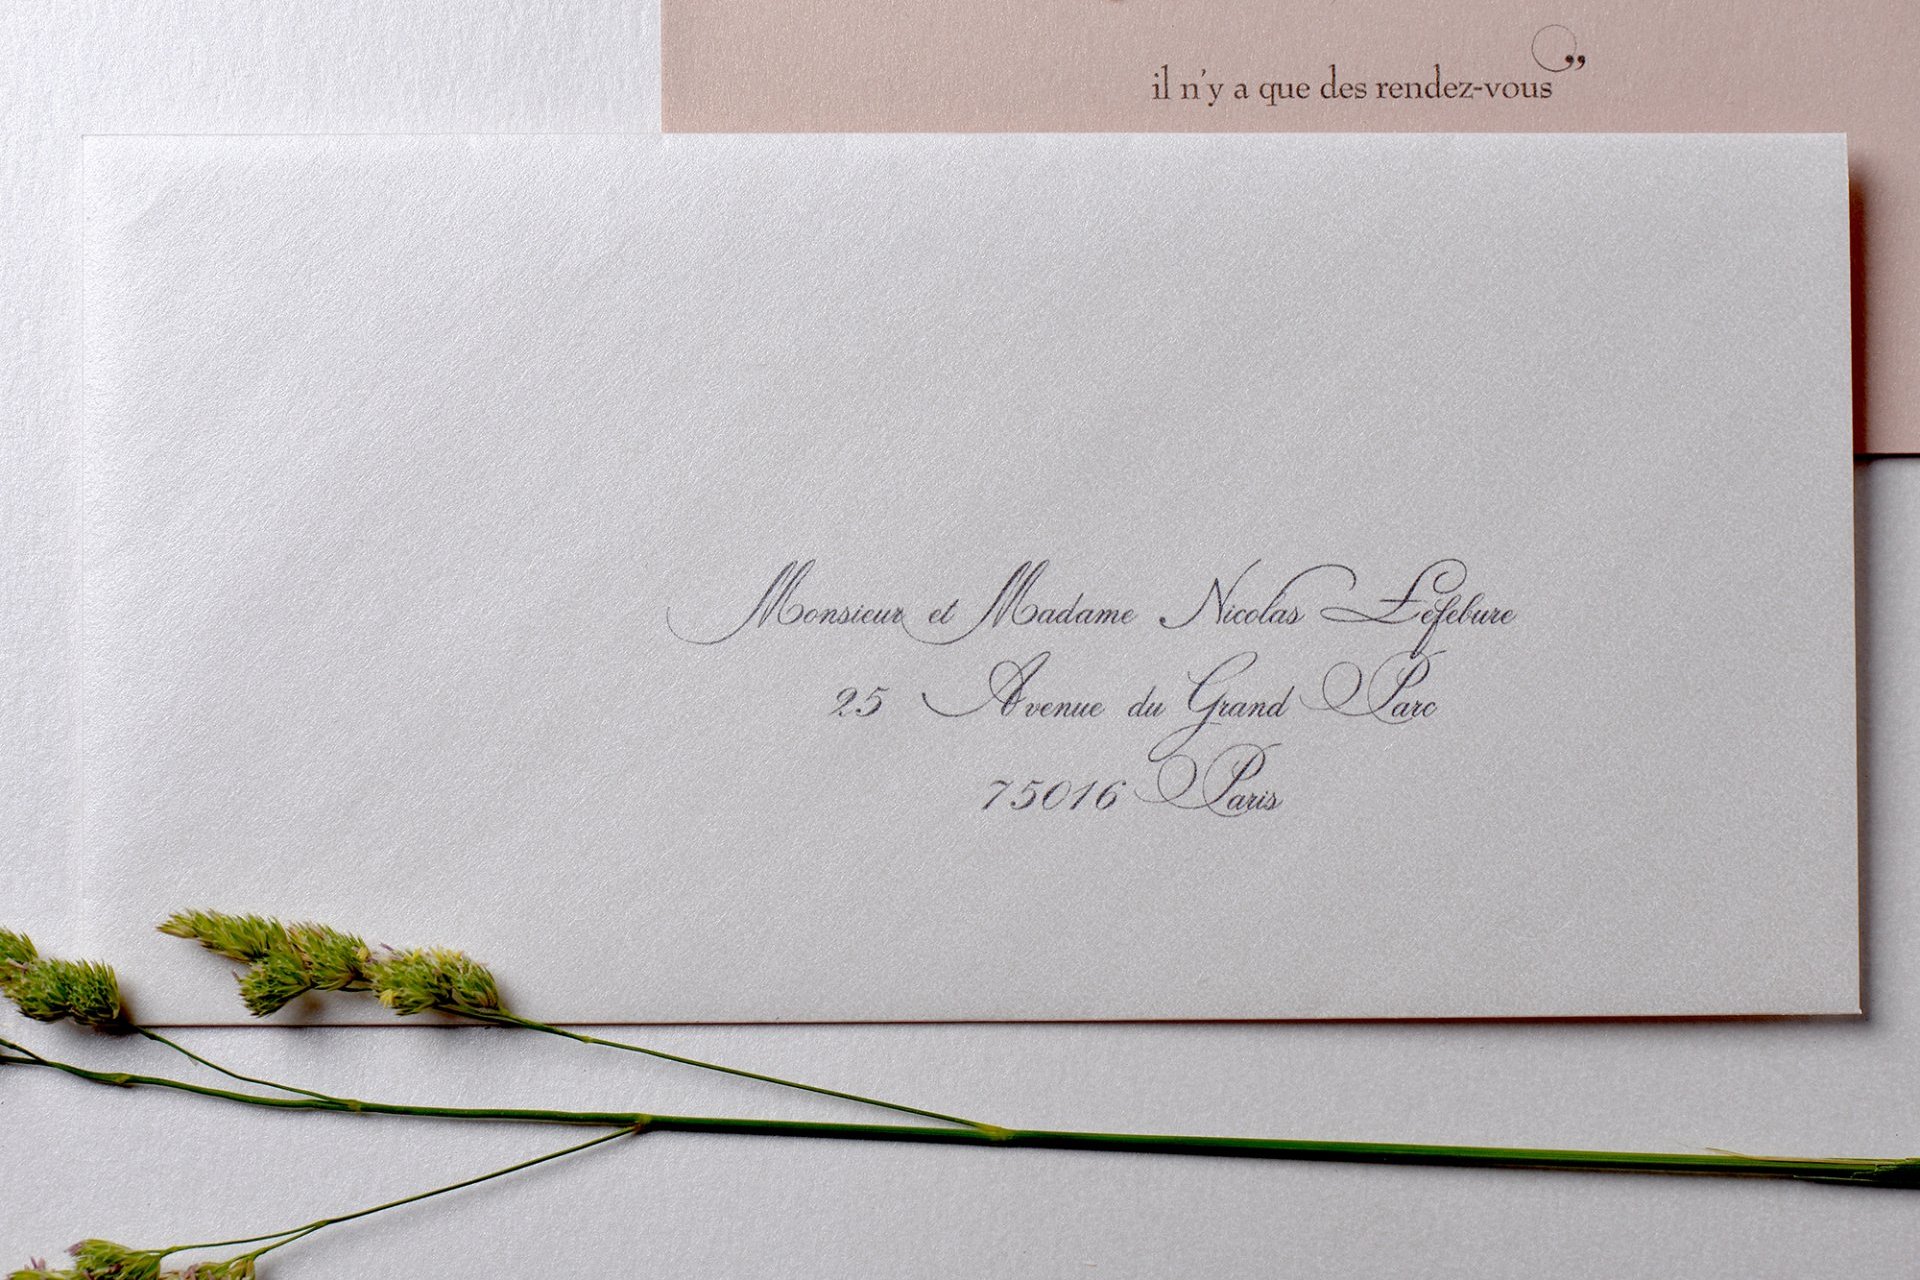 il n'y a que des rendez-vous”
Monsieur et Madame Nicolas Lefebure
25 Avenue du Grand Parc
75016 Paris